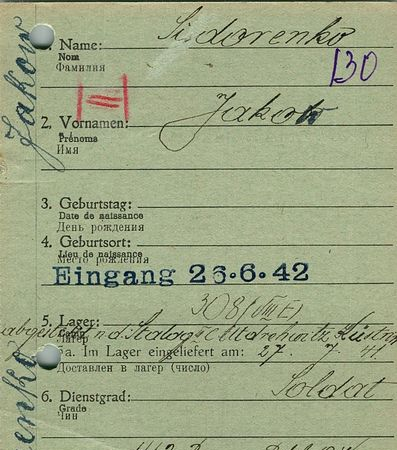 1. Name: Sidorenko
Nom
Фамилия
130
2. Vornamen: Jakow
Prénoms
Имя
3. Geburtstag:
Date de naissance
День рождения
4. Geburtsort:
Lieu de naissance
Место рождения
Eingang 26.6.42
5. Lager: 308 (VIII E)
Camp
Лагерь
n. d. Stalag III C Küstrin
a. Im Lager eingeliefert am: 27. 7. 41
Доставлен в лагерь (число)
6. Dienstgrad: Soldat
Grade
Чин
Jakow
enko